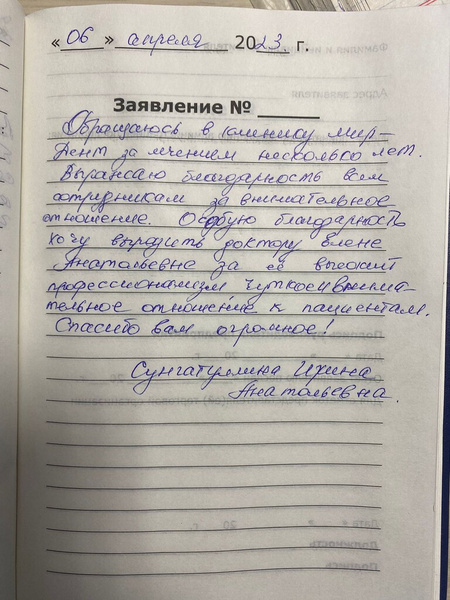 « 06 » апреля 2023. г.
Заявление № ______
Обращаюсь в клинику Мир-
Дент за лечением несколько лет.
Выражаю благодарность всем
сотрудникам за внимательное
отношение. Особую благодарность
хочу выразить доктору Елене
Анатольевне за её высокий
профессионализм чуткое и внима-
тельное отношение к пациентам.
Спасибо вам огромное!
Сунгатуллина
Анатольевна.